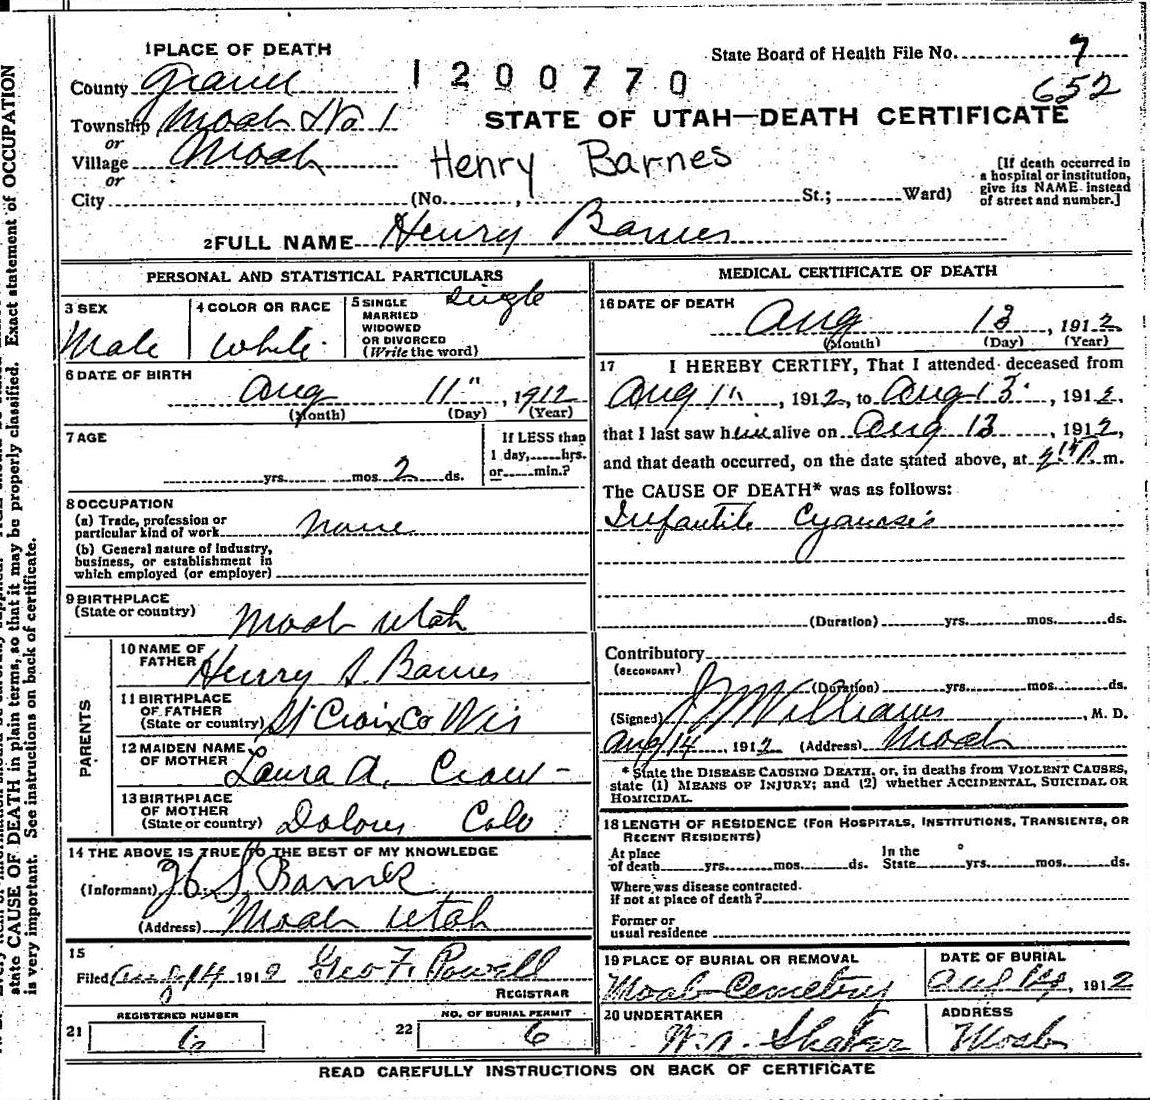 1 PLACE OF DEATH
State Board of Health File No. 7
652
County Grand
1200770
Township Moab No 1
STATE OF UTAH—DEATH CERTIFICATE
or
Village Moab
Henry Barnes
or
City (No. , St.; Ward)
[If death occurred in
a hospital or institution,
give its NAME instead
of street and number.]
2 FULL NAME Henry Barnes
PERSONAL AND STATISTICAL PARTICULARS
3 SEX
Male
4 COLOR OR RACE
White
5 SINGLE
MARRIED
WIDOWED
OR DIVORCED
(Write the word)
single
6 DATE OF BIRTH
Aug 11", 1912
(Month) (Day) (Year)
7 AGE
yrs. mos. 2 ds.
If LESS than
1 day, hrs.
or min.?
8 OCCUPATION
(a) Trade, profession or
particular kind of work none
(b) General nature of industry,
business, or establishment in
which employed (or employer)
9 BIRTHPLACE
(State or country) Moab Utah
PARENTS
10 NAME OF
FATHER Henry S. Barnes
11 BIRTHPLACE
OF FATHER
(State or country) St Croix Co Wis
12 MAIDEN NAME
OF MOTHER Laura A.
13 BIRTHPLACE
OF MOTHER
(State or country) Dolores Colo
14 THE ABOVE IS TRUE TO THE BEST OF MY KNOWLEDGE
(Informant) H. S. Barnes
(Address) Moab Utah
15
Filed Aug 14 1912 Geo F. Powell
REGISTRAR
21 REGISTERED NUMBER
6
22 NO. OF BURIAL PERMIT
6
MEDICAL CERTIFICATE OF DEATH
16 DATE OF DEATH
Aug 13, 1912
(Month) (Day) (Year)
17 I HEREBY CERTIFY, That I attended deceased from
Aug 11, 1912, to Aug 13, 1912,
that I last saw him alive on Aug 13, 1912,
and that death occurred, on the date stated above, at m.
The CAUSE OF DEATH* was as follows:
Infantile Cyanosis
(Duration) yrs. mos. ds.
Contributory
(SECONDARY)
(Duration) yrs. mos. ds.
(Signed) J W Williams, M. D.
Aug 14, 1912 (Address) Moab
* State the DISEASE CAUSING DEATH, or, in deaths from VIOLENT CAUSES,
state (1) MEANS OF INJURY; and (2) whether ACCIDENTAL, SUICIDAL OR
HOMICIDAL.
18 LENGTH OF RESIDENCE (FOR HOSPITALS, INSTITUTIONS, TRANSIENTS, OR
RECENT RESIDENTS)
At place
of death yrs. mos. ds.
In the
State yrs. mos. ds.
Where was disease contracted.
if not at place of death?
Former or
usual residence
19 PLACE OF BURIAL OR REMOVAL
Moab Cemetery
DATE OF BURIAL
Aug 14, 1912
20 UNDERTAKER
ADDRESS
Moab
READ CAREFULLY INSTRUCTIONS ON BACK OF CERTIFICATE
state CAUSE OF DEATH in plain terms, so that it may be properly classified. Exact statement of OCCUPATION
is very important. See instructions on back of certificate.